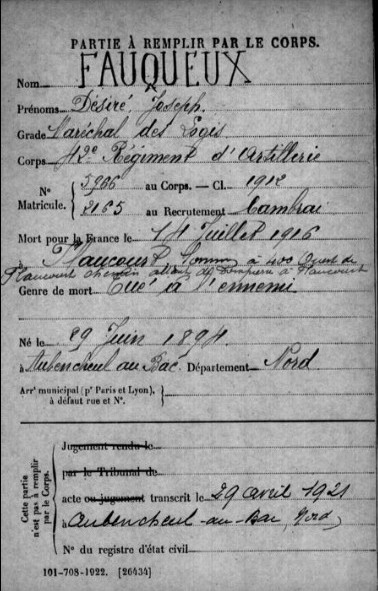 PARTIE À REMPLIR PAR LE CORPS.
Nom FAUQUEUX
Prénoms Désiré Joseph
Grade Maréchal des Logis
Corps 42e Régiment d'Artillerie
N° Matricule. 5966 au Corps. — Cl. 1912
2165 au Recrutement Cambrai
Mort pour la France le 14 Juillet 1916
à Flaucourt, Somme à 400 Ouest de
Flaucourt chemin allant de Dompierre à Flaucourt
Genre de mort Tué à l'ennemi
Né le 29 Juin 1894
à Aubencheul au Bac Département Nord
Arrt municipal (pr Paris et Lyon),
à défaut rue et N°.
Cette partie n'est pas à remplir par le Corps.
Jugement rendu le
par le Tribunal de
acte ou jugement transcrit le 29 avril 1921
à Aubencheul-au-Bac, Nord,
N° du registre d'état civil
101-708-1922. [26434]